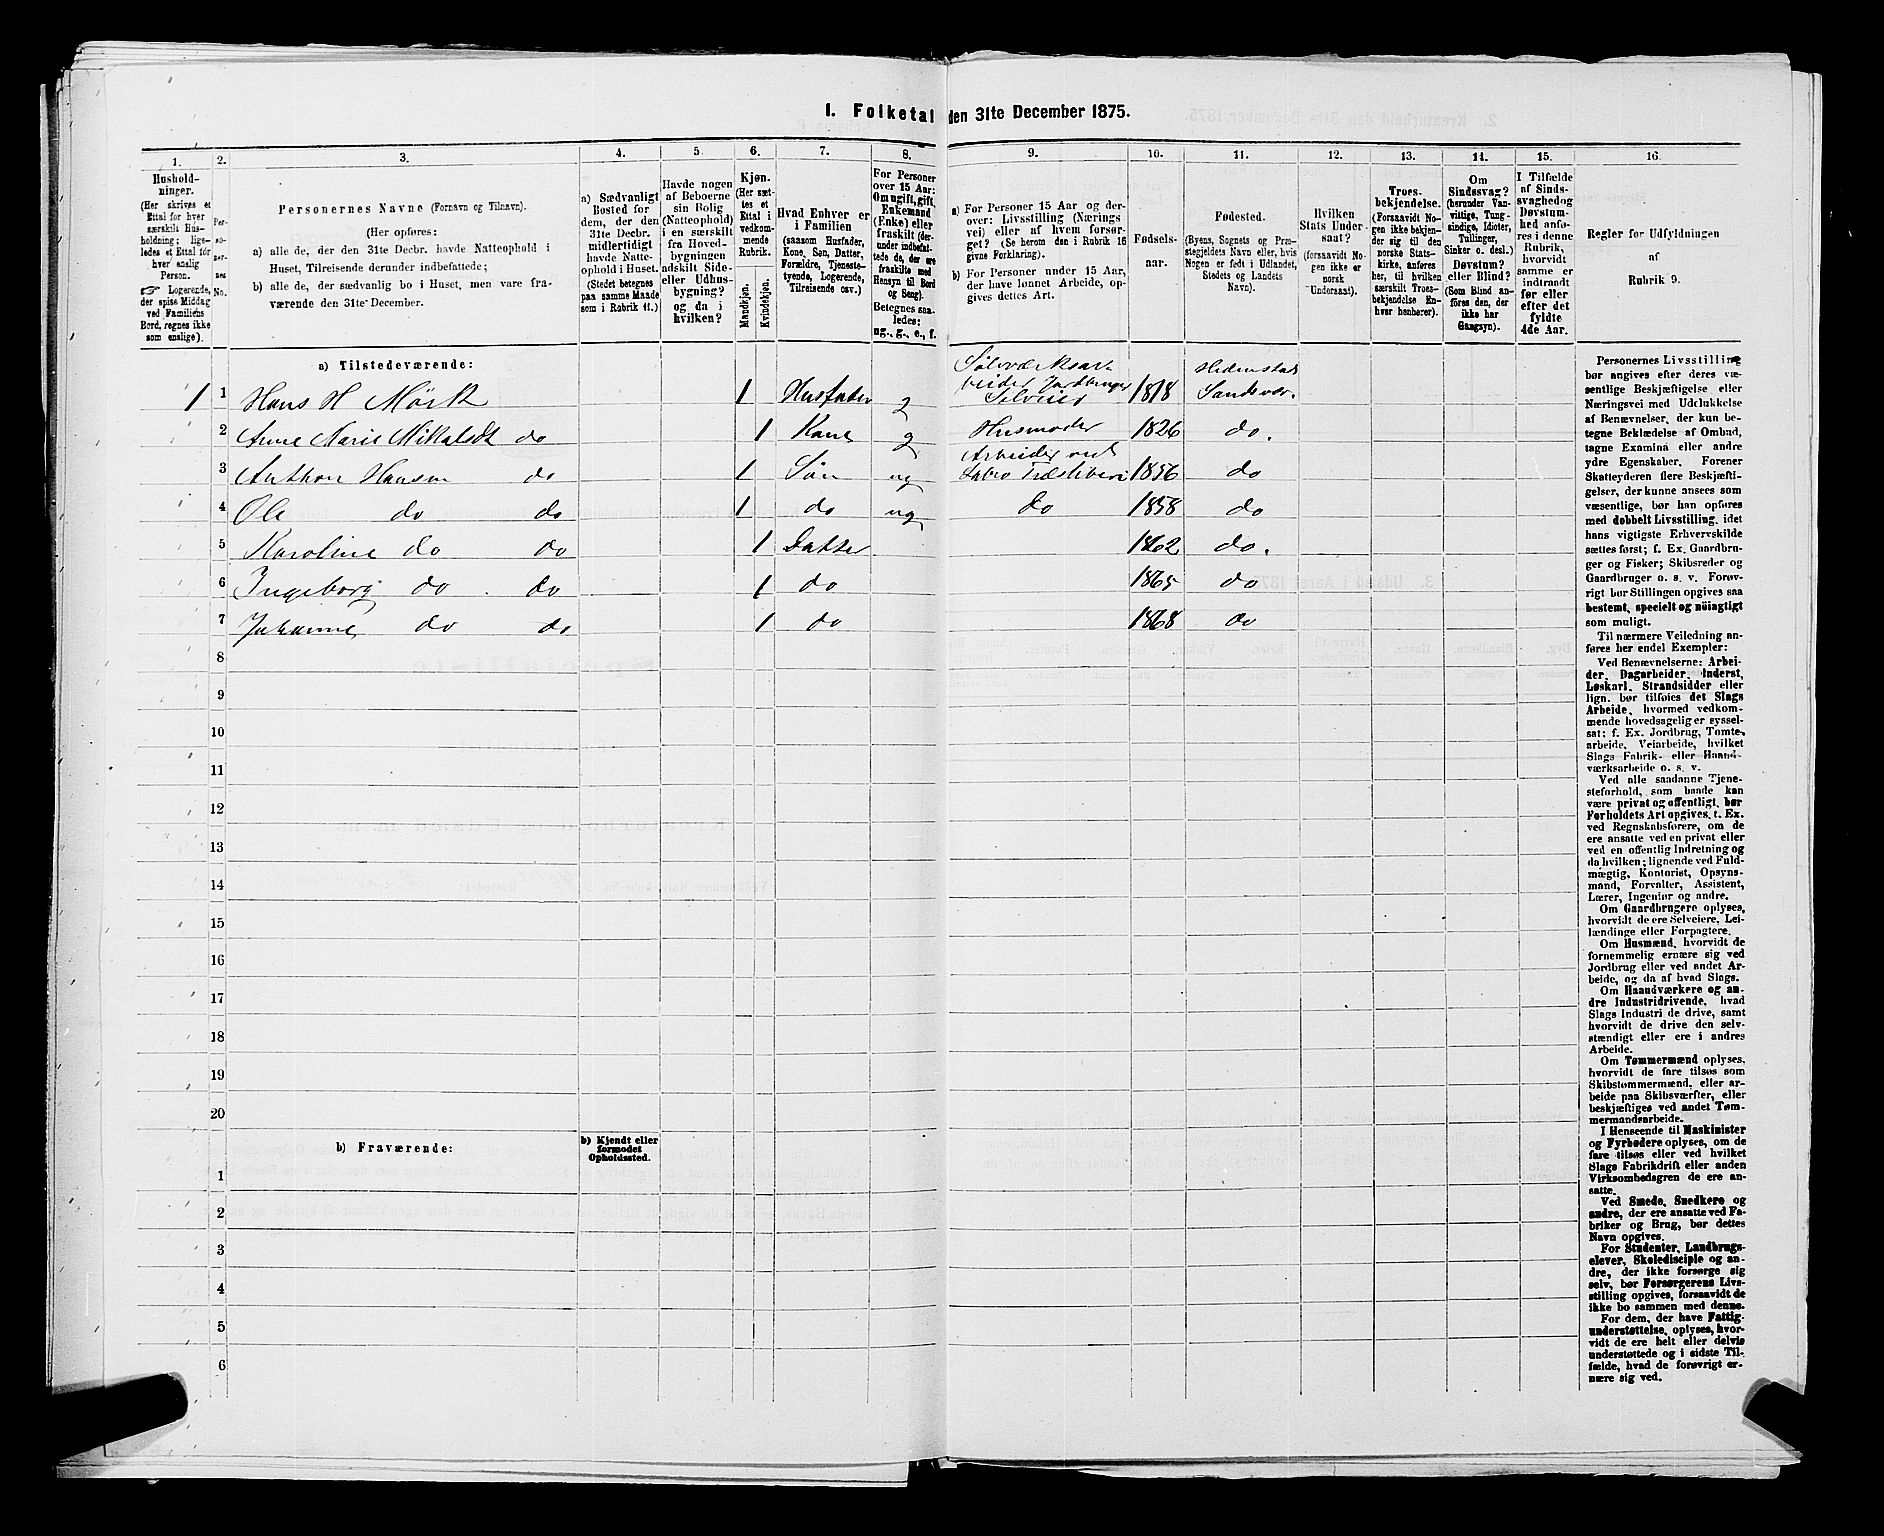 1. Folketal den 31te December 1875.
1.
2.
3.
4.
5.
6.
7.
8.
9.
10.
11.
12.
13.
14.
15.
16.
Hushold-
ninger.
(Her skrives et
Ettal for hver
særskilt Hus-
holdning; lige-
ledes et Ettal for
hver enslig
Person.
☞ Logerende,
der spise Middag
ved Familiens
Bord, regnes ikke
som enslige).
Per-
so-
ner-
nes
No.
Personernes Navne (Fornavn og Tilnavn).
(Her opføres:
a) alle de, der den 31te Decbr. havde Natteophold i
Huset, Tilreisende derunder indbefattede;
b) alle de, der sædvanlig bo i Huset, men vare fra-
værende den 31te December.
a) Sædvanligt
Bosted for
dem, der den
31te Decbr.
midlertidigt
havde Natte-
ophold i Huset.
(Stedet betegnes
paa samme Maade
som i Rubrik 11.)
Havde nogen
af Beboerne
sin Bolig
(Natteophold)
i en særskilt
fra Hoved-
bygningen
adskilt Side-
eller Udhus-
bygning?
og da i
hvilken?
Kjøn.
(Her sæt-
tes et
Ettal i
vedkom-
mende
Rubrik.
Mandkjøn.
Kvindekjøn.
Hvad Enhver er
i Familien
(saasom Husfader,
Kone, Søn, Datter,
Forældre, Tjeneste-
tyende, Logerende,
Tilreisende osv.)
For Personer
over 15 Aar:
Om ugift, gift,
Enkemand
(Enke) eller
fraskilt (der-
under indbefat-
tede de, der ere
fraskilte med
Hensyn til Bord
og Seng).
Betegnes saa-
ledes:
ug., g., e., f.
a) For Personer 15 Aar og der-
over: Livsstilling (Nærings
vei) eller af hvem forsør-
get? (Se herom den i Rubrik 16
givne Forklaring).
b) For Personer under 15 Aar,
der have lønnet Arbeide, op-
gives dettes Art.
Fødsels-
aar.
Fødested.
(Byens, Sognets og Præ-
stegjeldets Navn eller, hvis
Nogen er født i Udlandet,
Stedets og Landets
Navn).
Hvilken
Stats Under-
saat?
(forsaavidt No-
gen ikke er
norsk
Undersaat).
Troes-
bekjendelse.
(Forsaavidt No-
gen ikke bekjen-
der sig til den
norske Stats-
kirke, anføres
her, til hvilken
særskilt Troes-
bekjendelse En-
hver henhører).
Om
Sindssvag?
(herunder Van-
vittige, Tung-
sindige, Idioter,
Tullinger,
Sinker o. desl.)
Døvstum?
eller Blind?
(Som Blind an-
føres den, der
ikke har
Gangsyn).
I Tilfælde
af Sinds-
svaghed og
Døvstum-
hed anfø-
res i denne
Rubrik,
hvorvidt
samme er
indtraadt
før eller
efter det
fyldte
4de Aar.
Regler for Udfyldningen
af
Rubrik 9.
a) Tilstedeværende:
1 1 Hans H Mørk 1 Husfader g Sølvværksar-
beider Jordbruger
Selveier 1818 Hedenstad
Sandsvær.
2 Anne Marie Mikalsdt do 1 Kone g Husmoder 1826 do.
3 Anthon Hansen do 1 Søn ug Arbeider ved
Labro Træsliberi 1856 do
4 Ole do do 1 do ug do 1858 do
5 Karoline do do 1 Datter 1862 do.
6 Ingeborg do do 1 do 1865 do
7 Johanne do do 1 do 1868 do
8
9
10
11
12
13
14
15
16
17
18
19
20
b) Fraværende:
b) Kjendt eller
formodet
Opholdssted.
1
2
3
4
5
6
Personernes Livsstilling
bør angives efter deres væ-
sentlige Beskjæftigelse eller
Næringsvei med Udelukkelse
af Benævnelser, der kun be-
tegne Beklædelse af Ombud,
tagne Examina eller andre
ydre Egenskaber. Forener
Skatteyderen flere Beskjæfti-
gelser, der kunne ansees som
væsentlige, bør han opføres
med dobbelt Livsstilling, idet
hans vigtigste Erhvervskilde
sættes først; f. Ex. Gaardbru-
ger og Fisker; Skibsreder og
Gaardbruger o. s. v. Forøv-
rigt bør Stillingen opgives saa
bestemt, specielt og nøiagtigt
som muligt.
Til nærmere Veiledning an-
føres her endel Exempler:
Ved Benævnelserne: Arbei-
der, Dagarbeider, Inderst,
Løskarl, Strandsidder eller
lign. bør tilføies det Slags
Arbeide, hvormed vedkom-
mende hovedsagelig er syssel-
sat; f. Ex. Jordbrug, Tomte-
arbeide, Veiarbeide, hvilket
Slags Fabrik- eller Haand-
værksarbeide o. s. v.
Ved alle saadanne Tjene-
steforhold, som baade kan
være privat og offentligt, bør
Forholdets Art opgives, t. Ex.
ved Regnskabsførere, om de
ere ansatte ved en privat eller
ved en offentlig Indretning og
da hvilken; lignende ved Fuld-
mægtig, Kontorist, Opsyns-
mand, Forvalter, Assistent,
Lærer, Ingeniør og andre.
Om Gaardbrugere oplyses,
hvorvidt de ere Selveiere, Lei-
lændinge eller Forpagtere.
Om Husmænd, hvorvidt de
fornemmelig ernære sig ved
Jordbrug eller ved andet Ar-
beide, og da af hvad Slags.
Om Haandværkere og an-
dre Industridrivende, hvad
Slags Industri de drive, samt
hvorvidt de drive den selv-
stændigt eller ere i andres
Arbeide.
Om Tømmermænd oplyses,
hvorvidt de fare tilsøs som
Skibstømmermænd, eller ar-
beide paa Skibsværfter, eller
beskjæftiges ved andet Tøm-
mermandsarbeide.
I Henseende til Maskinister
og Fyrbødere oplyses, om de
fare tilsøs eller ved hvilket
Slags Fabrikdrift eller anden
Virksomhedsgren de ere an-
satte.
Ved Smede, Snedkere og
andre, der ere ansatte ved Fa-
briker og Brug, bør dettes
Navn opgives.
For Studenter, Landbrugs-
elever, Skoledisciple og an-
dre, der ikke forsørge sig
selv, bør Forsørgerens Livs-
stilling opgives, forsaavidt de
ikke bo sammen med denne.
For dem, der have Fattig-
understøttelse, oplyses, hvor-
vidt de ere helt eller delvis
understøttede og i sidste Til-
fælde, hvad de forøvrigt er-
nære sig ved.